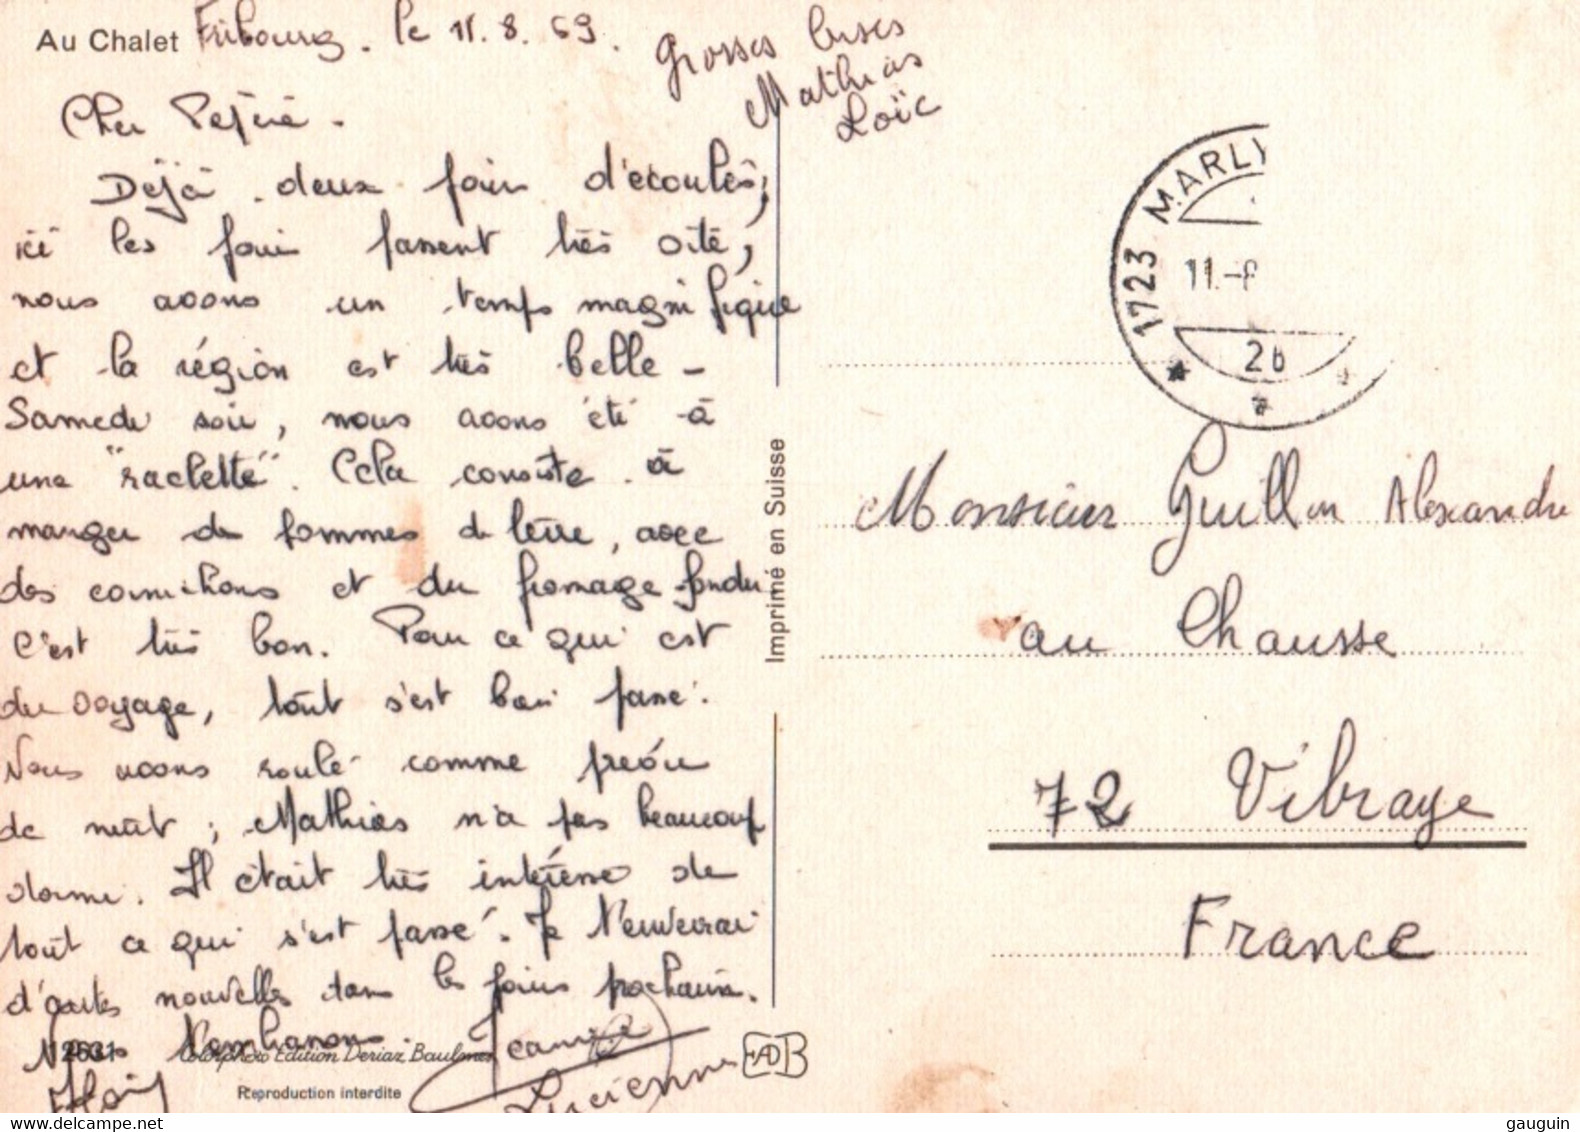 Au Chalet Fribourg. le 11.8.69.
Grosses bises
Mathias
Loïc
Cher Pépère.
Déjà deux jours d'écoulés,
ici les jours passent très vite,
nous avons un temps magnifique
et la région est très belle -
Samedi soir, nous avons été à
une "raclette". Cela consiste à
manger de pommes de terre, avec
des cornichons et du fromage fondu
C'est très bon. Pour ce qui est
du voyage, tout s'est bien passé.
Nous avons roulé comme prévu
de nuit ; Mathias n'a pas beaucoup
dormi. Il était très intéressé de
tout ce qui s'est passé. Je t'enverrai
d'autes nouvelles dans les jours prochains.
Nous t'embrassons. Jeannine
Lucienne
12631 Colorphoto Edition Deriaz Baulmes
Reproduction interdite
EAD B
Imprimé en Suisse
1723 MARLY
11.-8
20
Monsieur Guillon Alexandre
au Chausse
72 Vibraye
France
gauguin © www.delcampe.net